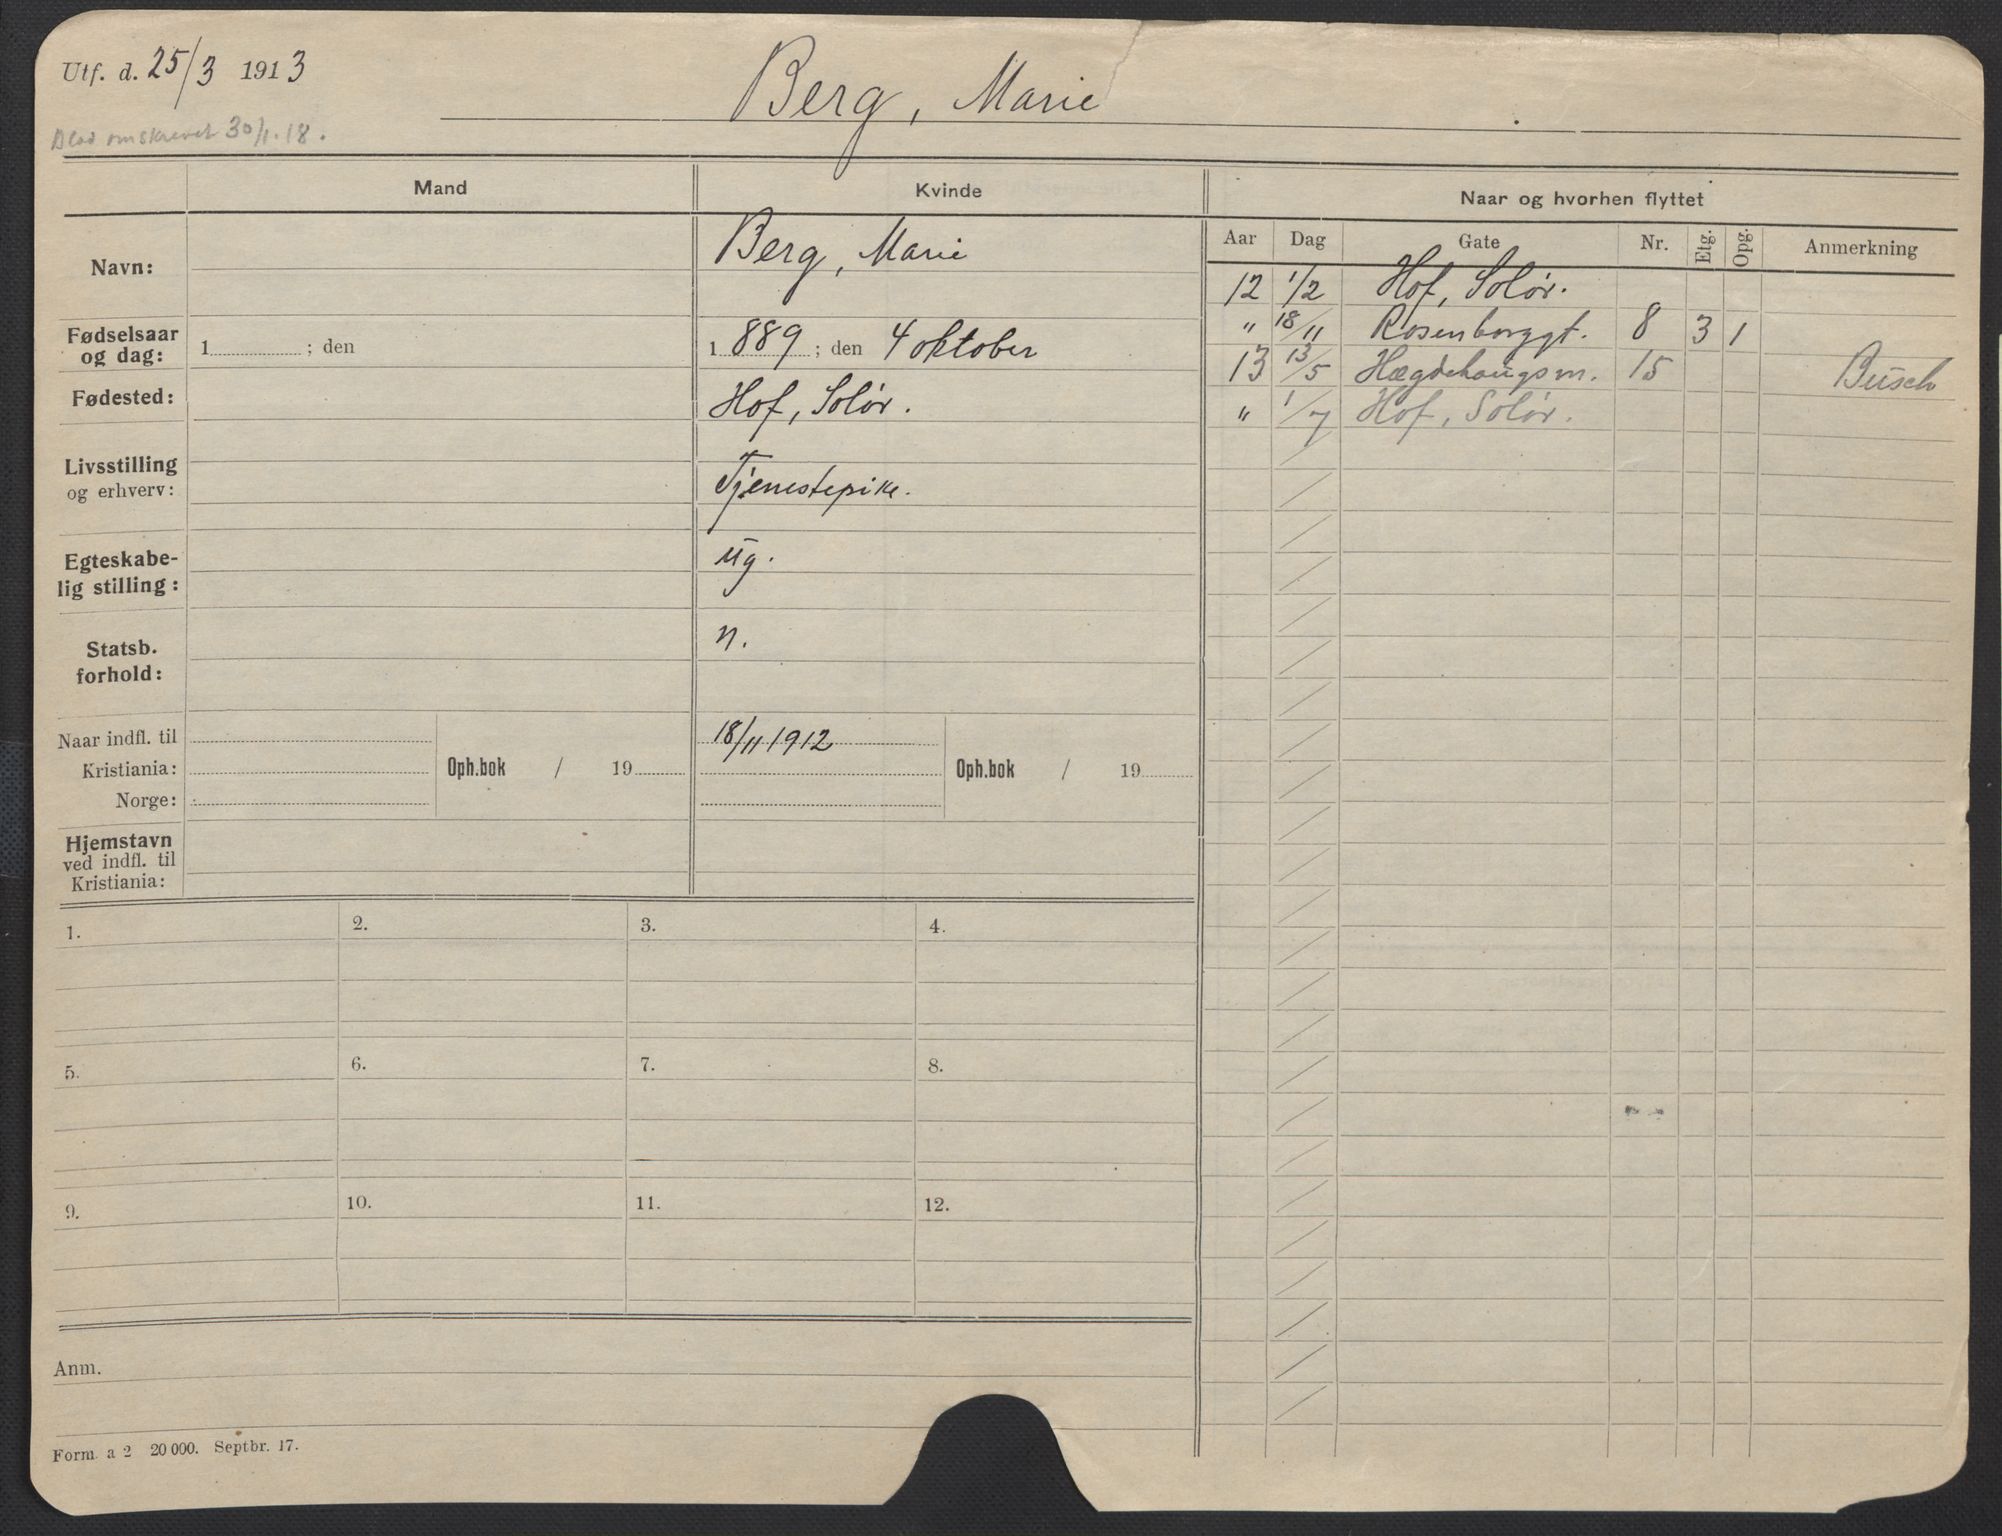 Utf. d. 25/3 1913
Berg, Marie
Blad omskrevet 30/1.18.
Mand
Kvinde
Naar og hvorhen flyttet
Aar Dag Gate Nr. Etg. Opg. Anmerkning
Navn: Berg, Marie
Fødselsaar og dag: 1 ; den 1889 ; den 4 oktober
Fødested: Hof, Solør.
Livsstilling
og erhverv: Tjenestepike.
Egteskabe-
lig stilling: ug.
Statsb.
forhold: n.
Naar indfl. til 18/11 1912
Kristiania: Oph.bok / 19 Oph.bok / 19
Norge:
Hjemstavn
ved indfl. til
Kristiania:
12 1/2 Hof, Solør.
" 18/11 Rosenborggt. 8 3 1
13 13/5 Hægdehaugsv. 15 Busch
" 1/7 Hof, Solør.
1. 2. 3. 4.
5. 6. 7. 8.
9. 10. 11. 12.
Anm.
Form. a 2 20 000. Septbr. 17.